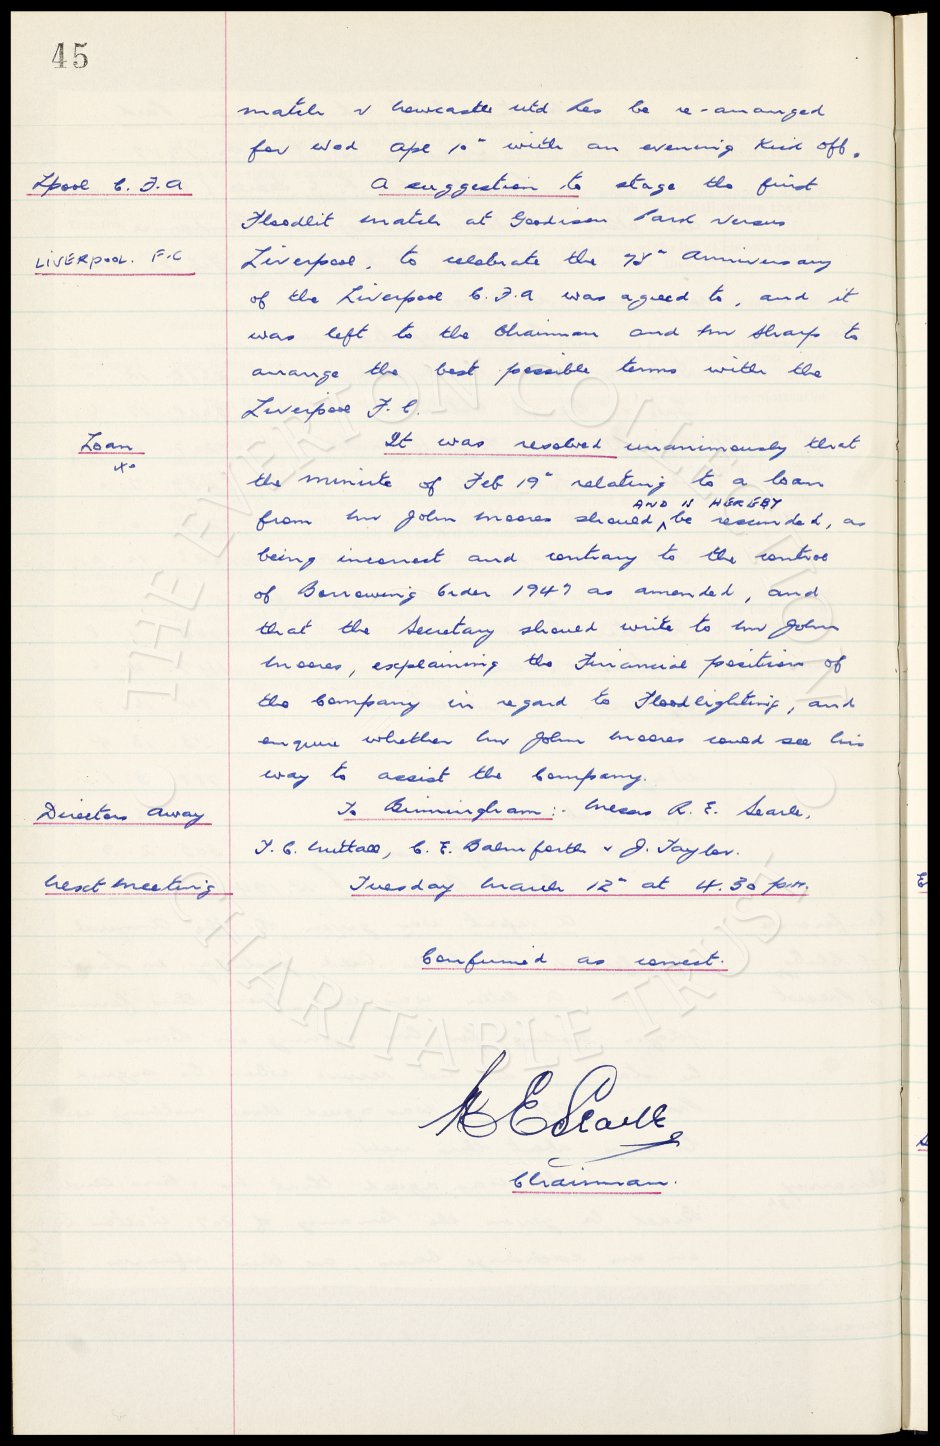 45
match v Newcastle Utd has be re-arranged
for Wed Apl 10" with an evening Kick off.
Lpool C. F. A
A suggestion to stage the first
Floodlit match at Goodison Park versus
LIVERPOOL. F.C
Liverpool, to celebrate the 75" Anniversary
of the Liverpool C. F. A was agreed to, and it
was left to the Chairman and Mr Sharp to
arrange the best possible terms with the
Liverpool F. C.
Loan
It was resolved unanimously that
the minute of Feb 19" relating to a loan
AND IS HEREBY
from Mr John Moores should be rescinded, as
being incorrect and contrary to the control
of Borrowing Order 1947 as amended, and
that the Secretary should write to Mr John
Moores, explaining the Financial position of
the Company in regard to Floodlighting, and
enquire whether Mr John Moores could see his
way to assist the Company.
Directors Away
To Birmingham:- Messrs R. E. Searle,
T. C. Nuttall, C. E. Balmforth & J. Taylor.
Next Meeting
Tuesday March 12" at 4.30 p.m.
Confirmed as correct.
R E Searle
Chairman.
THE EVERTON COLLECTION CHARITABLE TRUST